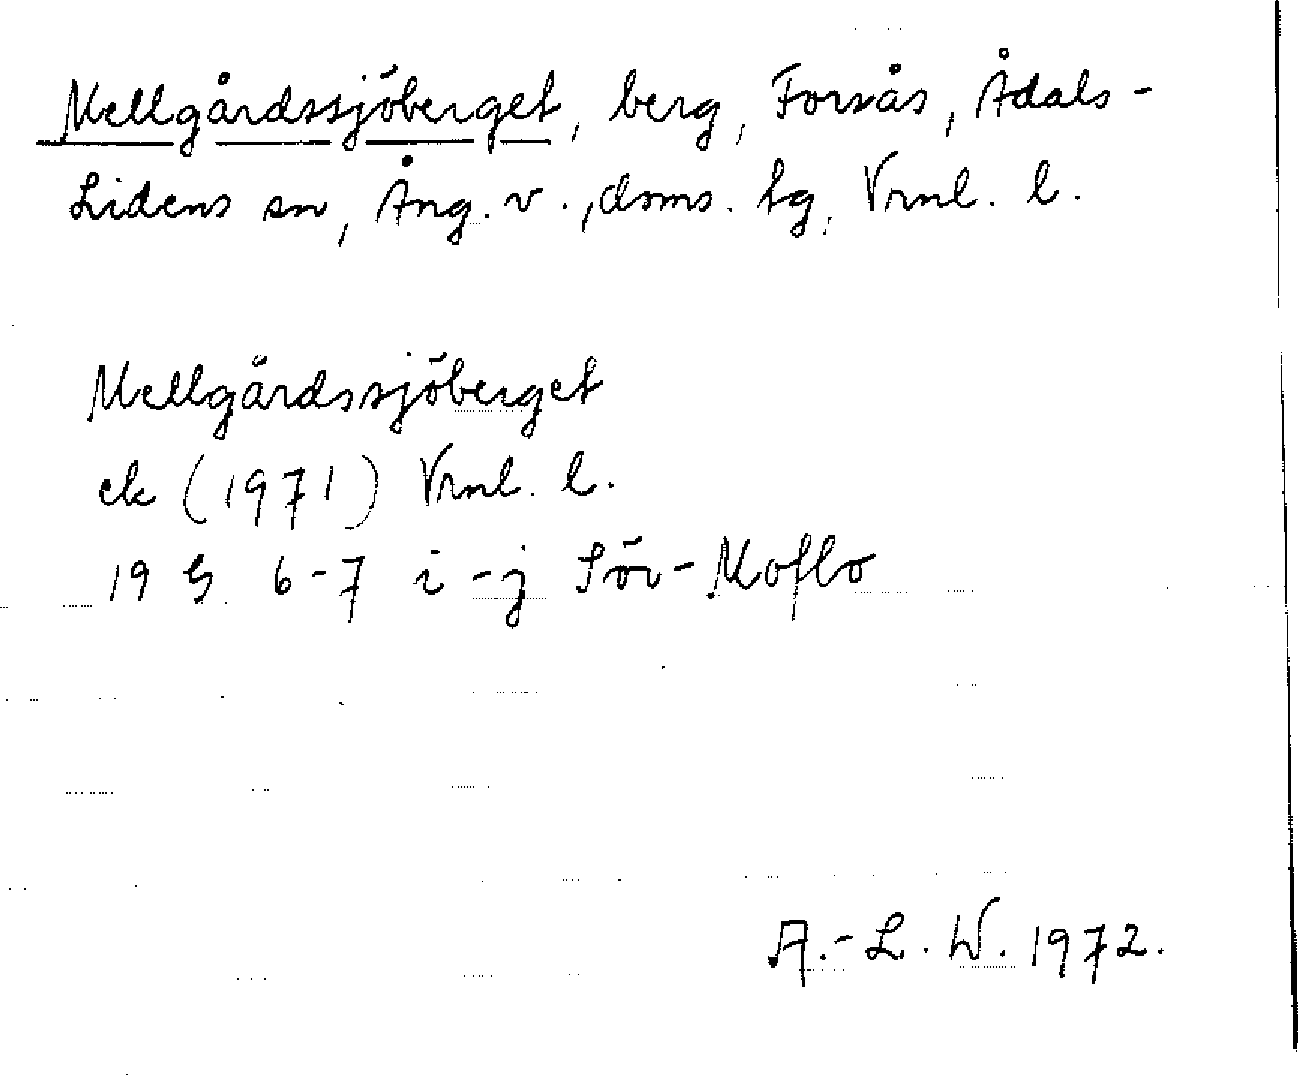 Mellgårdssjöberget, berg, Forsås, Ådals-
Lidens sn, Ång. v., doms. tg, Vrnl. l.
Mellgårdssjöberget
ek (1971) Vrnl. l.
19 G 6-7 i-j Sör-Moflo
A.-L. W. 1972.